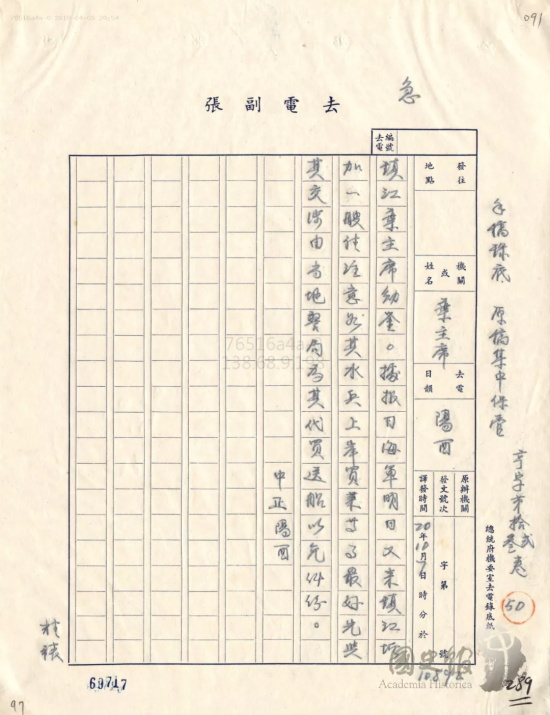 091
急
去電副張
手稿錄底 原稿集中保管
總統府機要室去電錄底紙
50
289
編號
去電
發往地點
機關或姓名
葉主席
去電日韻
陽酉
原辦機關
發文號次
字第 號
譯發時間
20年10月7日 時 分 於
鎮江葉主席勛鑒。據報日海軍明日又來鎮江增
加一艘請注意如其水兵上岸買菜等事最好先與
其交涉由當地警局為其代買送船以免糾紛。
中正陽酉
69717
97
國史館
Academia Historica
76516a4a